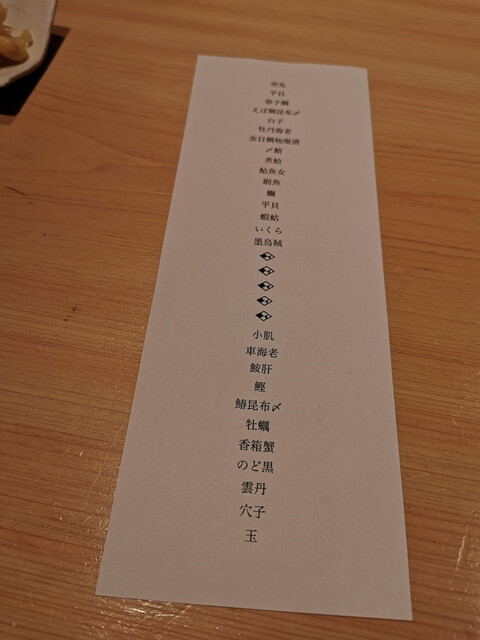 平目
春子鯛
えぼ鯛昆布〆
白子
牡丹海老
金目鯛粕庵漬
〆鯖
煮蛤
鮎魚女
鰤
平貝
蝦蛄
いくら
墨烏賊
小肌
車海老
鮟肝
鰹
鰆昆布〆
牡蠣
香箱蟹
のど黒
雲丹
穴子
玉